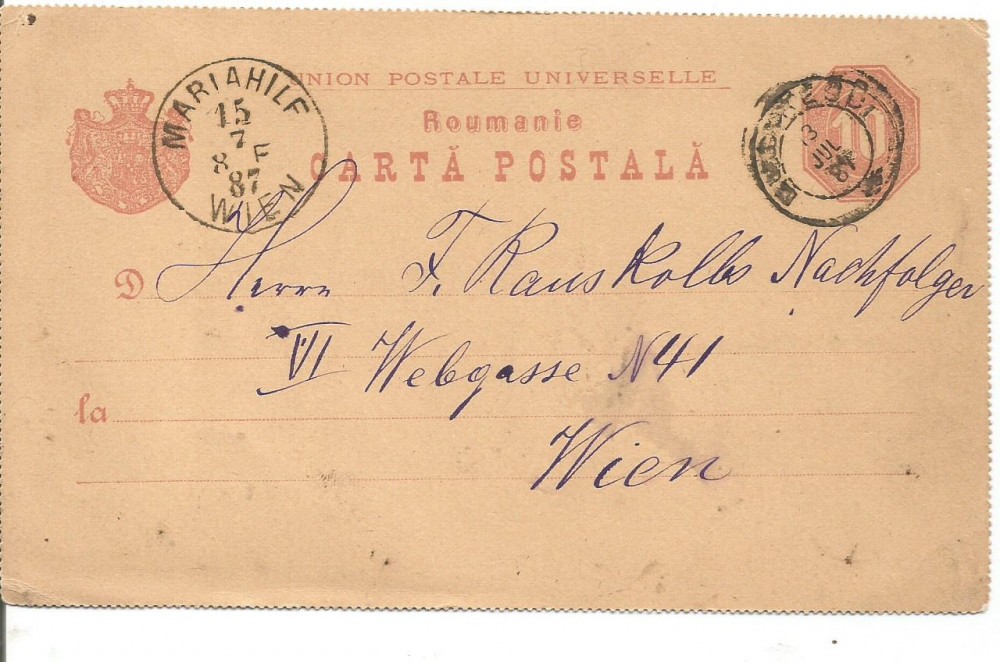 UNION POSTALE UNIVERSELLE
Roumanie
CARTĂ POSTALĂ
10
MARIAHILF
15
7
8 F
87
WIEN
D Herrn F. Rauskolbs Nachfolger
VI Webgasse N 41
la
Wien